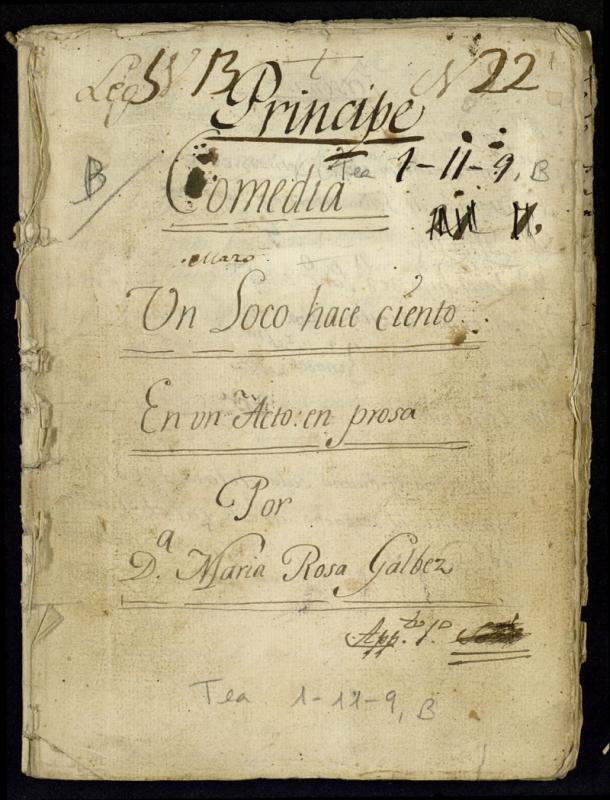 Leg W B N 22
Principe
Tea 1-11-9, B
B
Comedia
Un Loco hace ciento
En un Acto: en prosa
Por
D.ª Maria Rosa Galbez
App.do 1.º
Tea 1-11-9, B